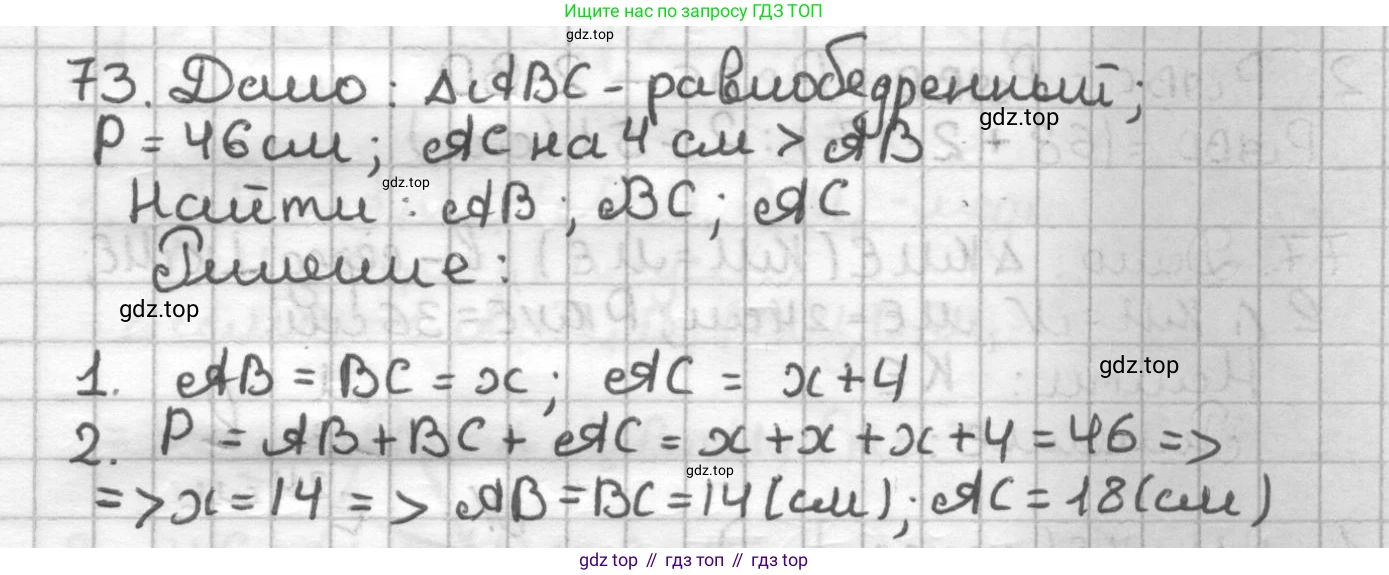 Ищите нас по запросу ГДЗ ТОП
gdz.top
73. Дано: ΔABC - равнобедренный;
gdz.top
P = 46 см; AC на 4 см > AB
gdz.top
Найти: AB; BC; AC
Решение:
gdz.top
gdz.top
1. AB = BC = x; AC = x+4
2. P = AB + BC + AC = x + x + x + 4 = 46 =>
gdz.top
=> x = 14 => AB = BC = 14 (см); AC = 18 (см)
gdz.top // гдз топ // gdz.top